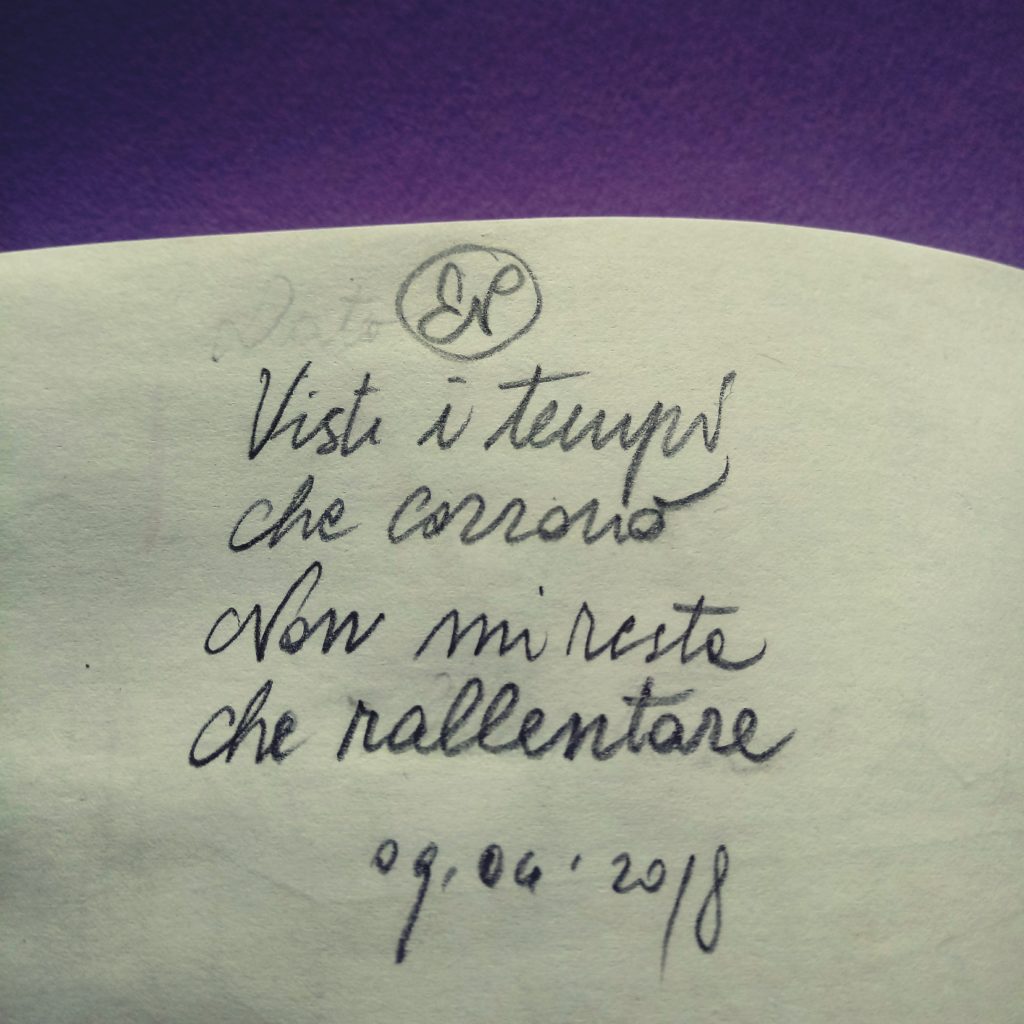 EN
Visti i tempi
che corrono
Non mi resta
che rallentare
09.04.2018